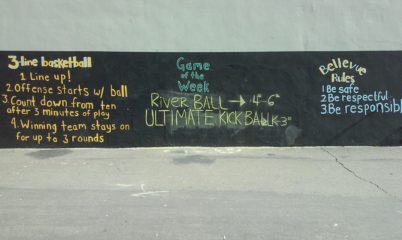 3-line basketball
1 Line up!
2. Offense starts w/ ball
3. Count down from ten
after 3 minutes of play
4. Winning team stays on
for up to 3 rounds
Game
of the
Week
RIVER BALL → 4-6
ULTIMATE KICK BALL K-3
Bellevue
Rules
1 Be safe
2 Be respectful
3 Be responsibl